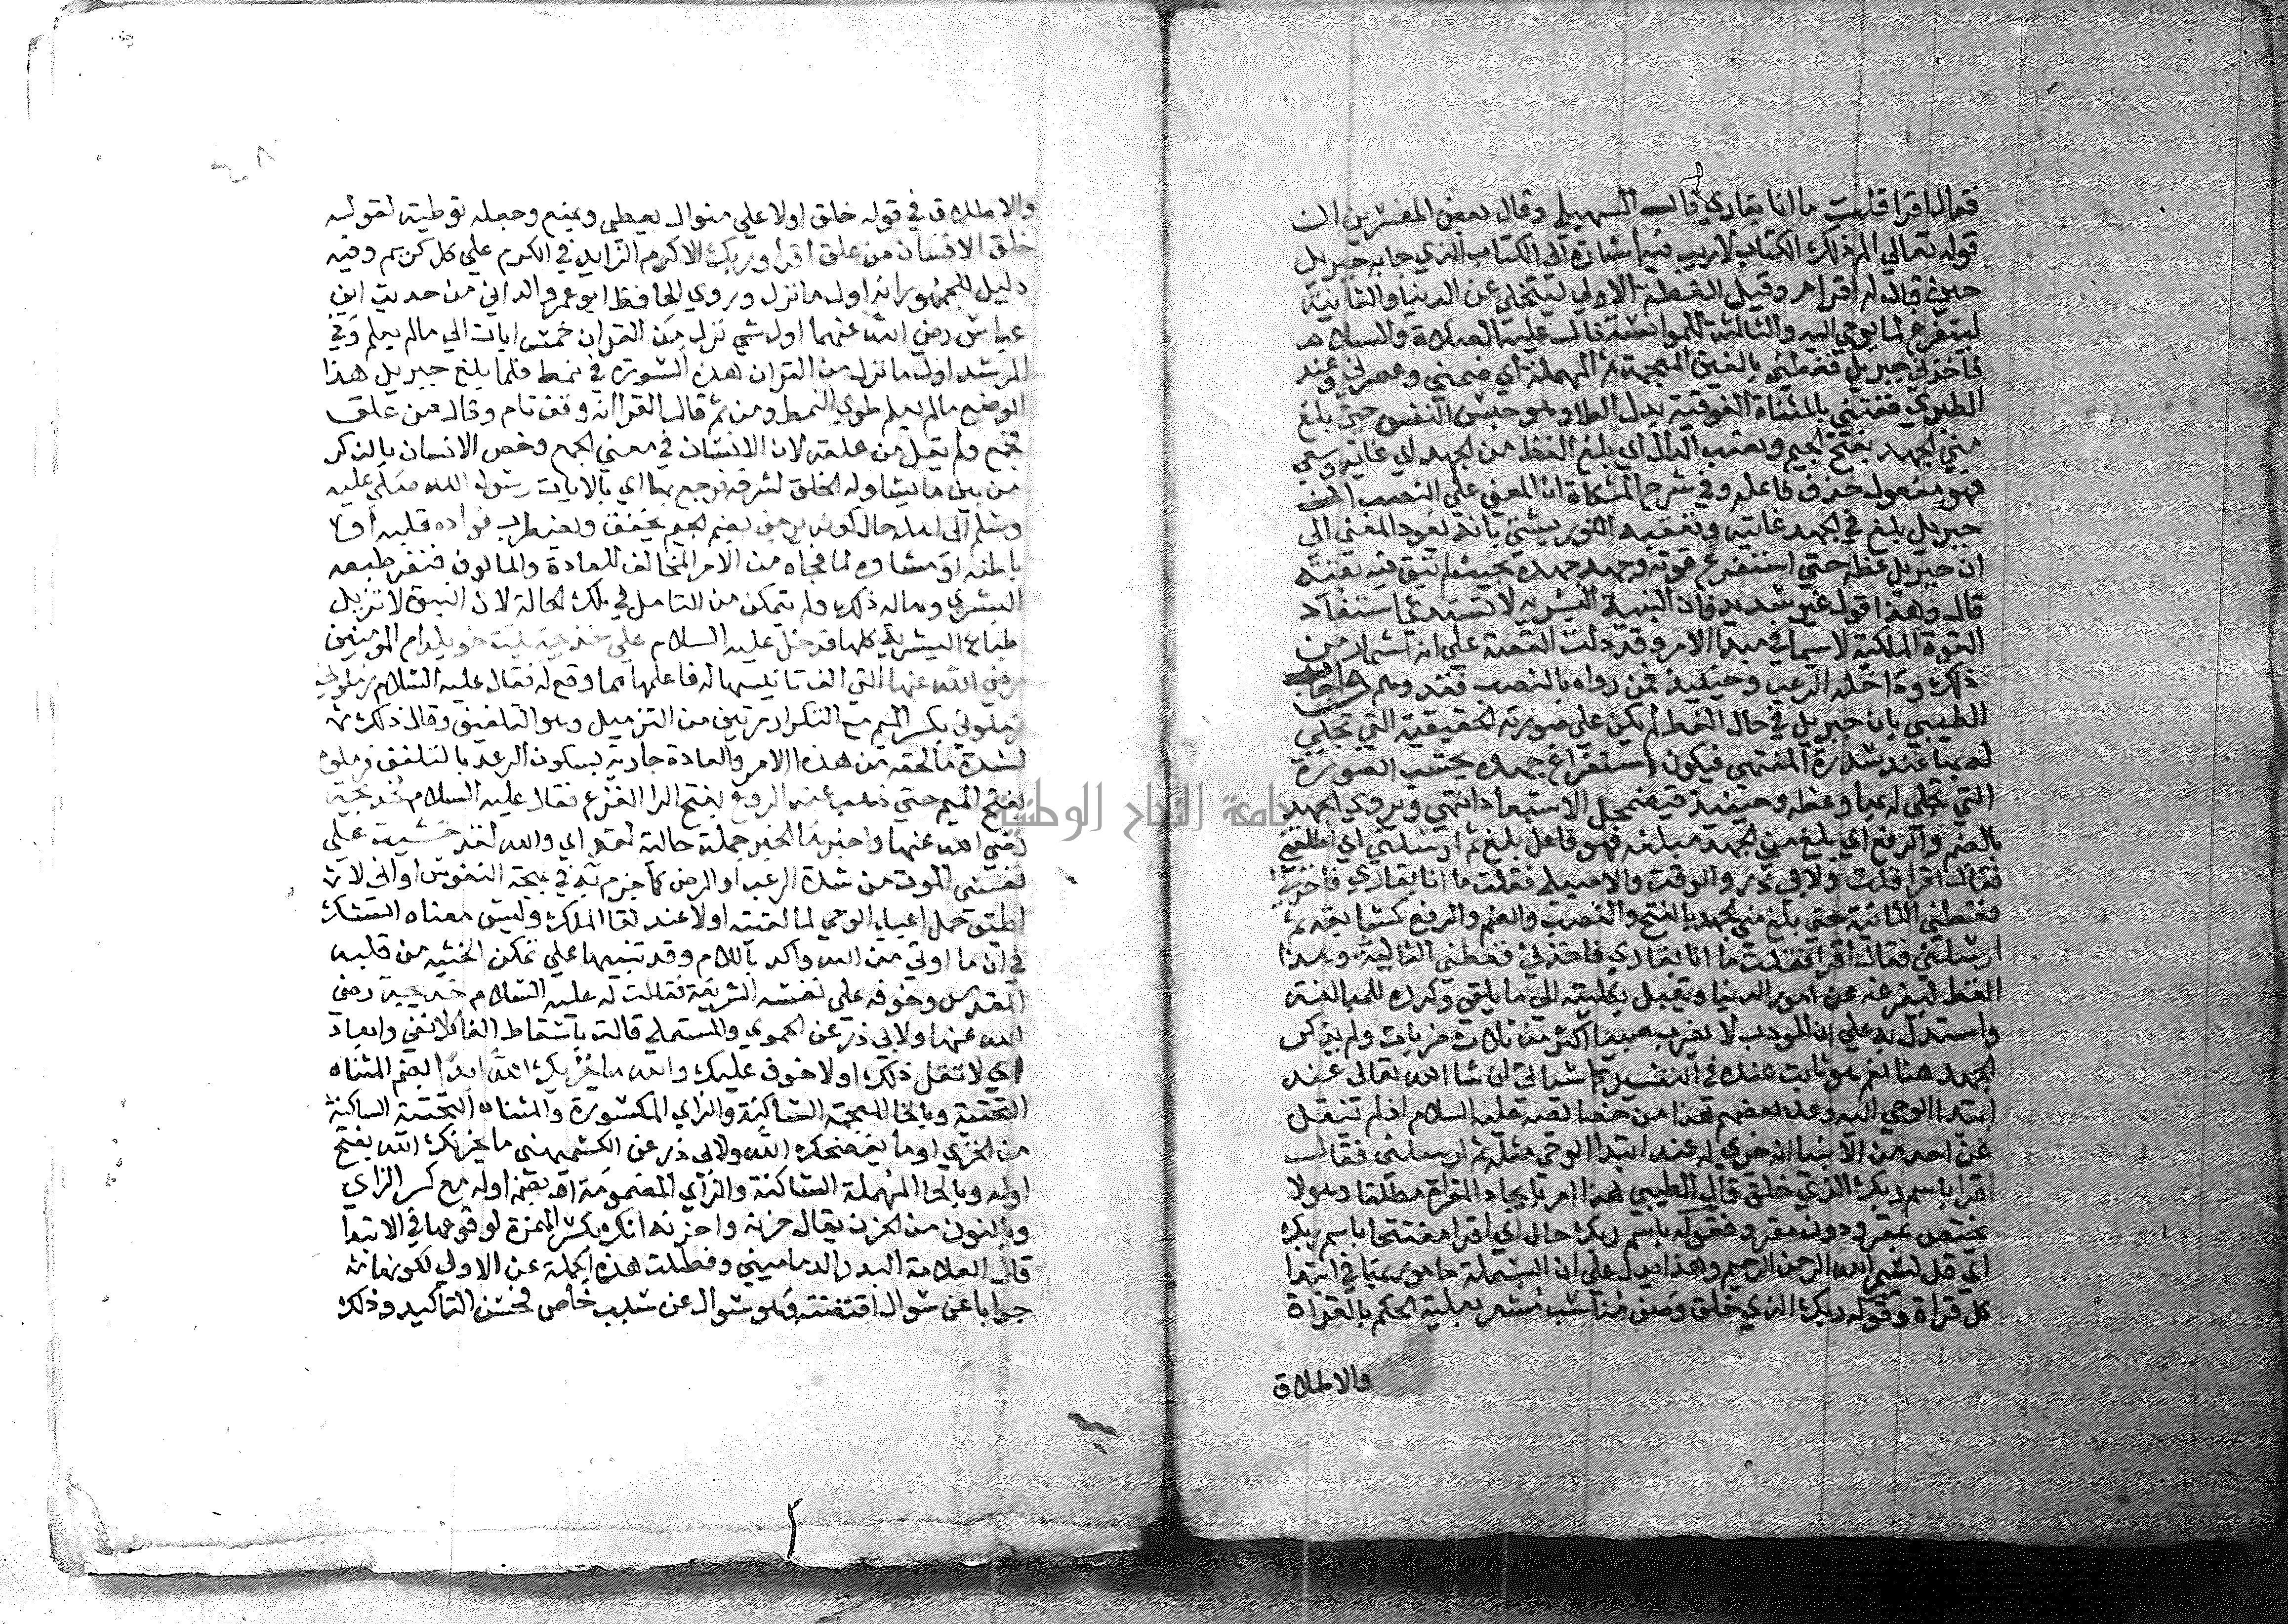 فقال اقرا قلت ما انا بقاري قال السهيلي وقال بعض المفسرين ان
قوله تعالي الم ذلك الكتاب لاريب فيه اشارة الي الكتاب الذي جا به جبريل
حين قال له اقرا هر وقيل الغطة الاولي ليتخلي عن الدنيا والثانية
ليتفرغ لما يوحي اليه والثالثة للموانسة قال عليه الصلاة والسلام
فاخذني جبريل فغطني بالغين المعجمة ثم المهملة اي ضمني وعصرني وعند
الطبري فغتني بالمثناة الفوقية بدل الطا وهو حبس النفس حتي بلغ
مني الجهد بفتح الجيم ونصب الدال اي بلغ الغط من الجهد اي غاية وسعي
فهو مفعول حذف فاعله وفي شرح المشكاة ان المعني علي النصب ان
جبريل بلغ في الجهد غايته وتعقبه التوربشتي بانه يعود المعني الي
ان جبريل غطه حتي استفرغ قوته وجهد جهده بحيث لم تبق فيه بقية
قال وهذا قول غير سديد فان البنية البشرية لا تستدعي استنفاد
القوة الملكية لاسيما في مبدا الامر وقد دلت القصة علي انه اشمأز من
ذلك وداخله الرعب وحينيذ فمن رواه بالنصب فقد وهم واجاب
الطيبي بان جبريل في حال الغط لم يكن علي صورته الحقيقية التي تجلي
له بها عند سدرة المنتهي فيكون استفراغ جهده بحسب الصورة
التي تجلي له بها وغطه وحينيذ فيضمحل الاستبعاد انتهي ويروي الجهد
بالضم والرفع اي بلغ مني الجهد مبلغه فهو فاعل بلغ ثم ارسلني اي اطلقني
فقال اقرا قلت ولابي ذر والوقت والاصيلي فقلت ما انا بقاري فاخذني
فغطني الثانية حتي بلغ مني الجهد بالفتح والنصب والضم والرفع كسابقه ثم
ارسلني فقال اقرا فقلت ما انا بقاري فاخذني فغطني الثالثة وهذا
الغط ليفرغه عن امور الدنيا ويقبل بكليته الي ما يلقي وكرره للمبالغة
واستدل به علي ان المودب لا يضرب صبيا اكثر من ثلاث ضربات ولم يذكر
الجهد هنا نعم هو ثابت عنده في التفسير كما سياتي ان شا الله تعالي عند
ابتدا الوحي اليه وعد بعضهم هذا من خصايصه عليه السلام اذ لم ينقل
عن احد من الانبيا انه جري له عند ابتدا الوحي مثله ثم ارسلني فقال
اقرا باسم ربك الذي خلق قال الطيبي هذا امر بايجاد القراة مطلقا وهو لا
يختص بمقرو دون مقرو فقوله باسم ربك حال اي اقرا مفتتحا باسم ربك
اي قل بسم الله الرحمن الرحيم وهذا يدل علي ان البسملة مامور بها في ابتدا
كل قراة وقوله ربك الذي خلق وصف مناسب مشعر بعلية الحكم بالقراة
والاطلاق
والاطلاق في قوله خلق اولا علي منوال يعطي ويمنع وجعله توطية لقوله
خلق الانسان من علق اقرا وربك الاكرم الزايد في الكرم علي كل كريم وفيه
دليل للجمهور انه اول ما نزل وروي الحافظ ابو عمرو الداني من حديث ابن
عباس رضي الله عنهما اول شي نزل من القران خمس ايات الي مالم يعلم وفي
المرشد اول ما نزل من القران هذه السورة في نمط فلما بلغ جبريل هذا
الموضع مالم يعلم طوي النمط ومن ثم قال القراانه وقف تام وقال من علق
فجمع ولم يقل من علقة لان الانسان في معني الجمع وخص الانسان بالذكر
من بين ما يتناوله الخلق لشرفه فرجع بها اي بالايات رسول الله صلي عليه
وسلم الي اهله حال كونه يرجف بضم الجيم يخفق ويضطرب فواده قلبه او
باطنه او غشاوه لما فجاه من الامر المخالف للعادة والمالوف فنفر طبعه
البشري وهاله ذلك ولم يتمكن من التامل في تلك الحالة لان النبوة لا تزيل
طباع البشرية كلها فدخل عليه السلام علي خديجة بنت خويلد ام المومنين
رضي الله عنها التي الف تانيسها له فاعلمها بما وقع له فقال عليه السلام زملوني
زملوني بكسر الميم مع التكرار مرتين من التزميل وهو التلفيف وقال ذلك
لشدة ما لحقه من هذا الامر والعادة جارية بسكون الرعدة بالتلفف فزملوه
بفتح الميم حتي ذهب عنه الروع بفتح الرا الفزع فقال عليه السلام لخديجة
رضي الله عنها واخبرها الخبر جملة حالية لقد اي والله لقد خشيت علي
نفسي الموت من شدة الرعب او المرض كما جزم به في بهجة النفوس او اني لا
اطيق حمل اعباء الوحي لما لقيته اولا عند لقا الملك وليس معناه الشك
في ان ما اوتي من الله واكد باللام وقد تنبيها علي تمكن الخشية من قلبه
المقدس وخوفه علي نفسه الشريفة فقالت له عليه السلام خديجة رضي
الله عنها ولابي ذر عن الحموي والمستملي قالت باسقاط الفا كلا نفي وابعاد
اي لا تقل ذلك او لا خوف عليك والله ما يخزيك الله ابدا بضم المثناه
التحتية وبالخا المعجمة الساكنة والزاي المكسورة والمثناه التحتية الساكنة
من الخزي اي ما يفضحك الله ولابي ذر عن الكشميهني ما يحزنك الله بفتح
اوله وبالحا المهملة الساكنة والزاي المضمومة او بضم اوله مع كسر الزاي
وبالنون من الحزن يقال حزنه واحزنه انك بكسر الهمزة لوقوعها في الابتدا
قال العلامة البدر الدماميني وفصلت هذه الجملة عن الاولي لكونها
جوابا عن سوال اقتضته وهو سوال عن سبب خاص فحسن التاكيد وذلك
جامعة النجاح الوطنية